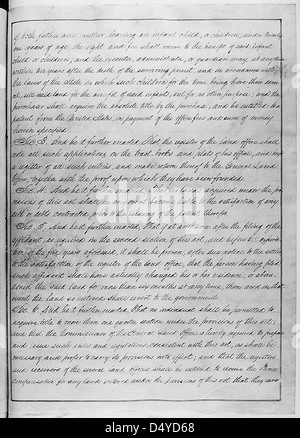 of both father and mother, leaving an infant child, or children, under twenty
one years of age, the right and fee shall enure to the benefit of said infant
child or children; and the executor, administrator, or guardian may, at any time
within two years after the death of the surviving parent, and in accordance with
the laws of the State in which such children for the time being have their dom-
icil, sell said land for the benefit of said infants, but for no other purpose; and the
purchaser shall acquire the absolute title by the purchase, and be entitled to a
patent from the United States, on payment of the office fees and sum of money
herein specified.
Sec. 3. And be it further enacted, That the register of the land office shall
note all such applications on the tract books and plats of his office, and keep
a register of all such entries, and make return thereof to the General Land
Office, together with the proof upon which they have been founded.
Sec. 4. And be it further enacted, That no lands acquired under the pro-
visions of this act shall in any event become liable to the satisfaction of any
debt or debts contracted prior to the issuing of the patent therefor.
Sec. 5. And be it further enacted, That if, at any time after the filing of the
affidavit, as required in the second section of this act, and before the expira-
tion of the five years aforesaid, it shall be proven, after due notice to the settler,
to the satisfaction of the register of the land office, that the person having filed
such affidavit shall have actually changed his or her residence, or aban-
doned the said land for more than six months at any time, then and in that
event the land so entered shall revert to the government.
Sec. 6. And be it further enacted, That no individual shall be permitted to
acquire title to more than one quarter section under the provisions of this act;
and that the Commissioner of the General Land Office is hereby required to prepare
and issue such rules and regulations, consistent with this act, as shall be
necessary and proper to carry its provisions into effect; and that the registers
and receivers of the several land offices shall be entitled to receive the same
compensation for any lands entered under the provisions of this act that they are now